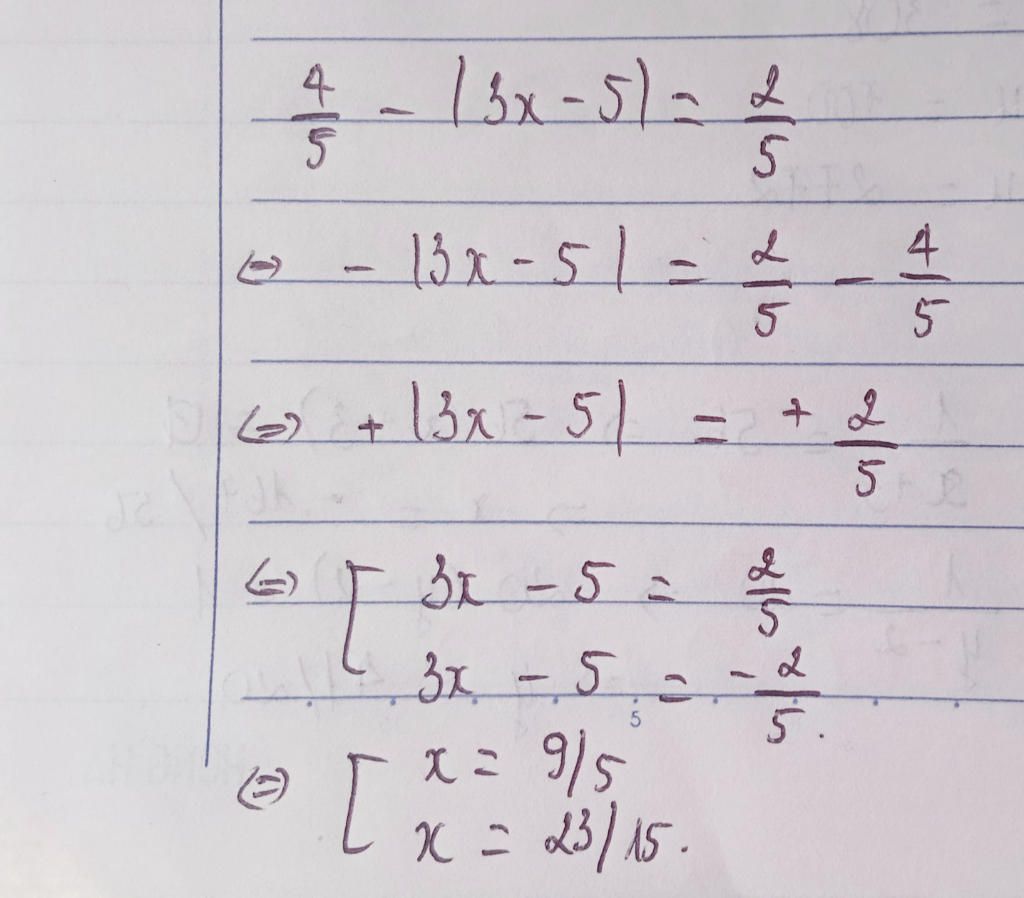 4/5 - |3x - 5| = 2/5
⇔ - |3x - 5| = 2/5 - 4/5
⇔ + |3x - 5| = + 2/5
⇔ [ 3x - 5 = 2/5
3x - 5 = - 2/5.
5
⇔ [ x = 9/5
x = 23/15.